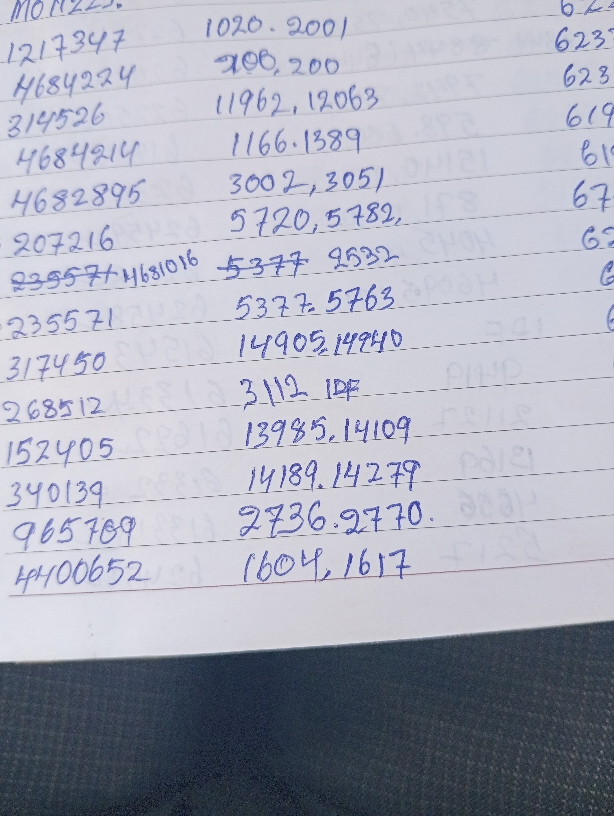 1217347 1020.2001
4684224 200,200
314526 11962,12063
4684214 1166.1389
4682895 3002,3051
207216 5720,5782,
235571 4681016 5377 2532
235571 5377.5763
317450 14905,14940
268512 3112 IDF
152405 13985.14109
340139 14189.14279
965769 2736.2770.
4400652 1604,1617